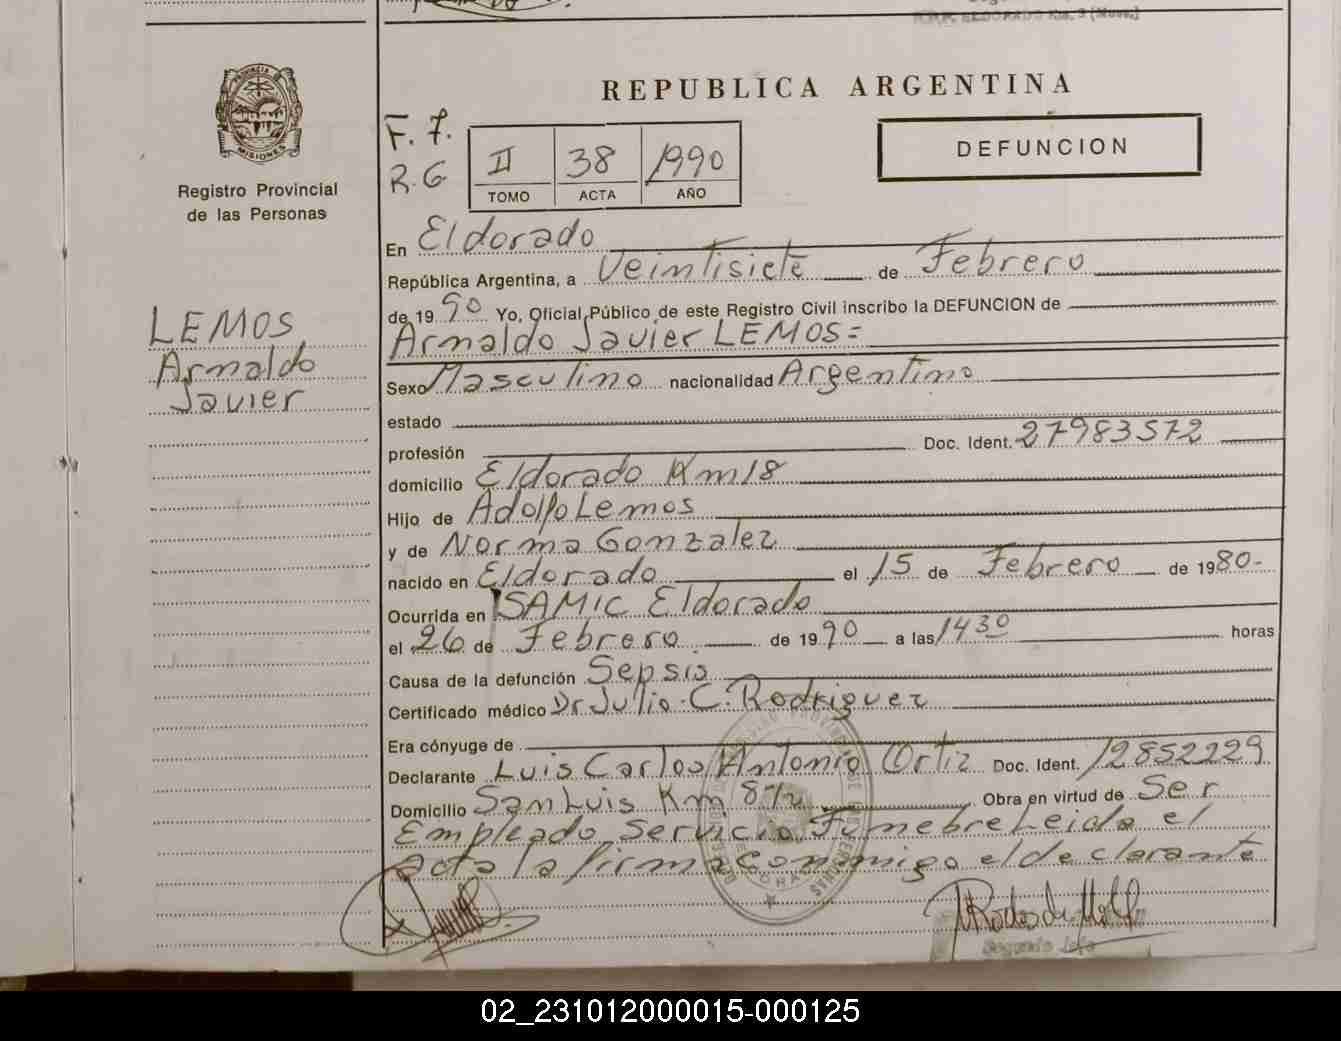 REPUBLICA ARGENTINA
PROVINCIA DE
MISIONES
Registro Provincial
de las Personas
F. 7.
R.G
II 38 1990
TOMO ACTA AÑO
DEFUNCION
LEMOS
Arnaldo
Javier
En Eldorado
República Argentina, a Veintisiete de Febrero
de 19 90 Yo, Oficial Público de este Registro Civil inscribo la DEFUNCION de
Arnaldo Javier LEMOS=
Sexo Masculino nacionalidad Argentino
estado
profesión Doc. Ident. 27983572
domicilio Eldorado Km 18
Hijo de Adolfo Lemos
y de Norma Gonzalez
nacido en Eldorado el 15 de Febrero de 1980-
Ocurrida en SAMIC Eldorado
el 26 de Febrero de 19 90 a las 1430 horas
Causa de la defunción Sepsis
Certificado médico Dr Julio C. Rodriguez
Era cónyuge de
Declarante Luis Carlos Antonio Ortiz Doc. Ident. 12852229
Domicilio San Luis Km 8 1/2 Obra en virtud de Ser
Empleado Servicio Funebre Leida el
acta la firma conmigo el declarante
Segundo Jefe
02_231012000015-000125